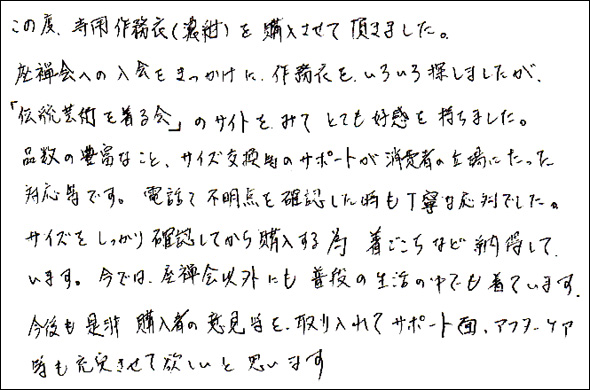 この度、専用作務衣(濃紺)を購入させて頂きました。
座禅会への入会をきっかけに、作務衣を、いろいろ探しましたが、
「伝統芸術を着る会」のサイトをみてとても好感を持ちました。
品数の豊富なこと、サイズ交換等のサポートが消費者の立場にたった
対応等です。電話で不明点を確認した時も丁寧な応対でした。
サイズをしっかり確認してから購入する為 着ごこちなど納得して
います。今では、座禅会以外にも普段の生活の中でも着ています。
今後も是非購入者の意見等を、取り入れてサポート面、アフターケア
等も充実させて欲しいと思います